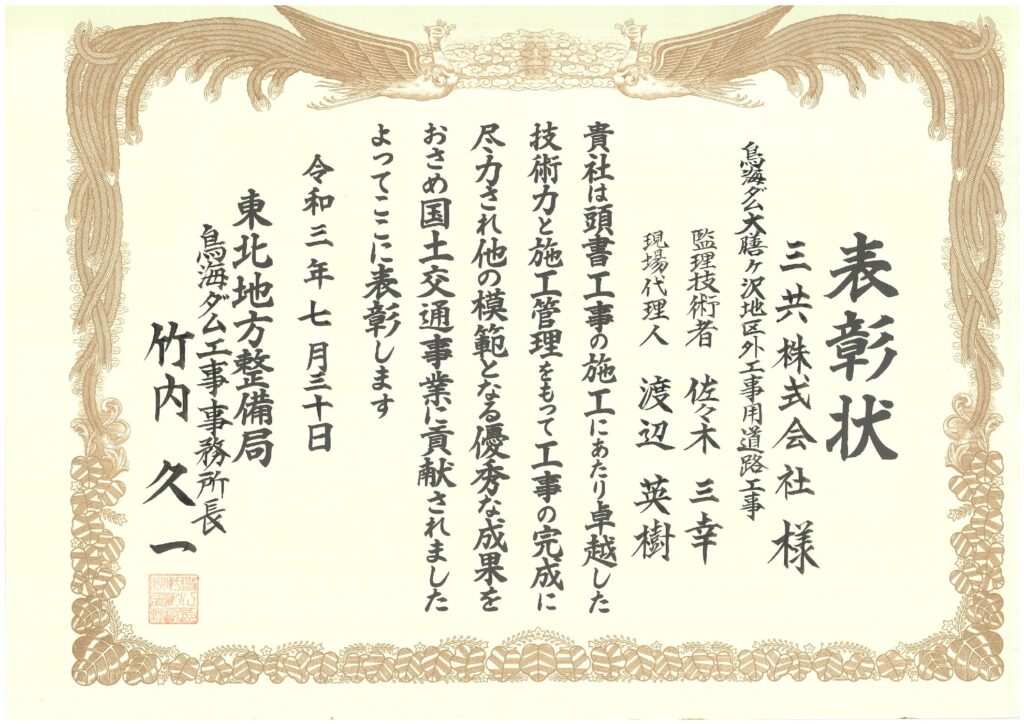 表彰状
三共株式会社 様
鳥海ダム大膳ヶ沢地区外工事用道路工事
監理技術者 佐々木 三幸
現場代理人 渡辺 英樹
貴社は頭書工事の施工にあたり卓越した
技術力と施工管理をもって工事の完成に
尽力され他の模範となる優秀な成果を
おさめ国土交通事業に貢献されました
よってここに表彰します
令和三年七月三十日
東北地方整備局
鳥海ダム工事事務所長
竹内 久一